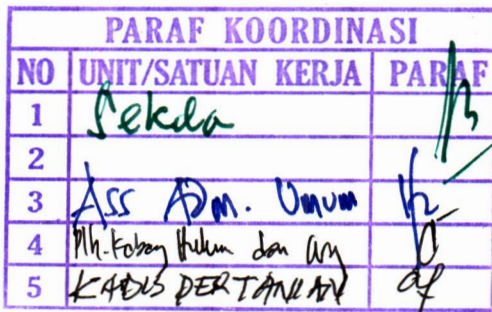 PARAF KOORDINASI
NO UNIT/SATUAN KERJA PARAF
1 Sekda
2
3 Ass Adm. Umum
4 Plh. Kabag Hukum dan
5 KADIS PERTANIAN